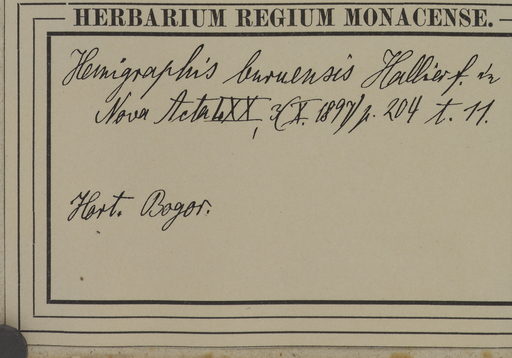 HERBARIUM REGIUM MONACENSE.
Hemigraphis buruensis Hallier f. in
Nova Acta LXX, 3 (X. 1897) p. 204 t. 11.
Hort. Bogor.